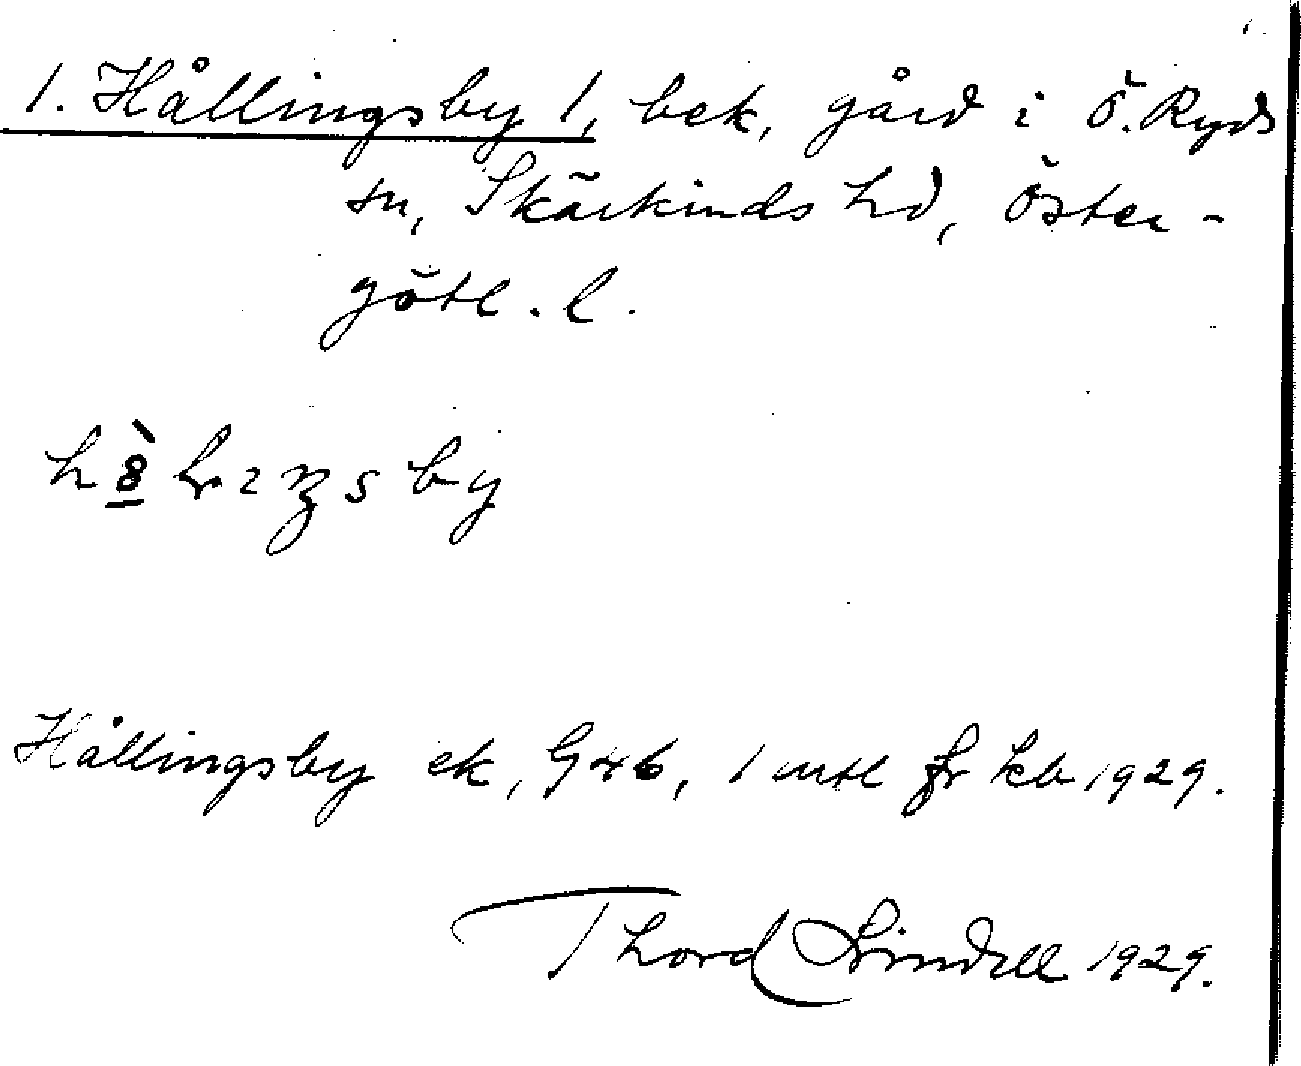 1. Hållingsby 1, bek, gård i Ö. Ryds
sn, Skärkinds hd, Öster-
götl. l.
Hållingsby ek, G 46, 1 mtl fr kb 1929.
Thord Lindell 1929.